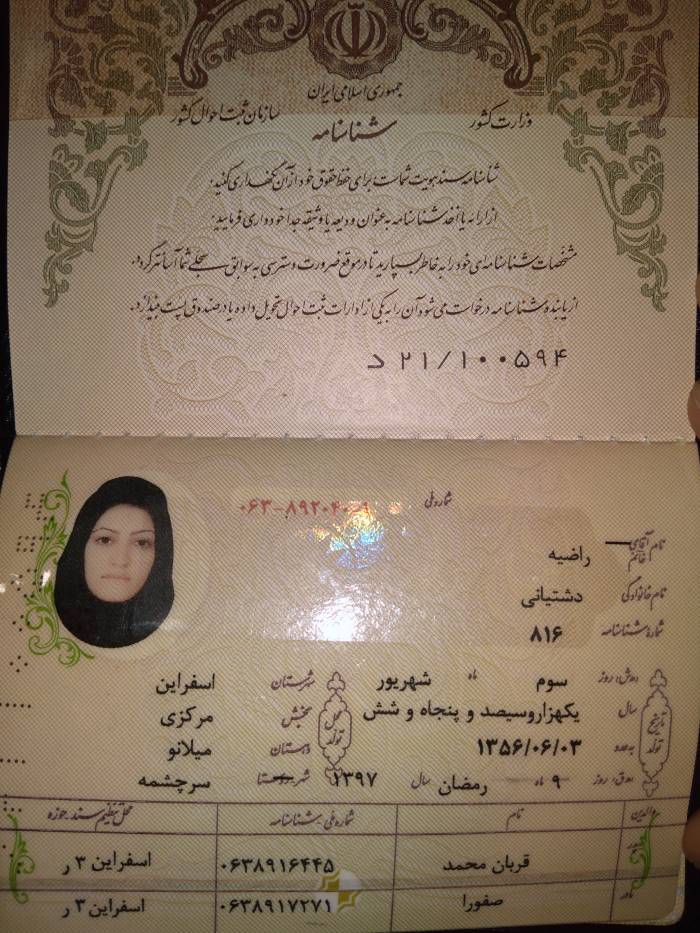 جمهوری اسلامی ایران
وزارت کشور
سازمان ثبت احوال کشور
شناسنامه
شناسنامه سند هویت شماست برای حفظ حقوق خود از آن نگهداری کنید.
از ارایه یا اخذ شناسنامه به عنوان ودیعه یا وثیقه جدا خودداری فرمایید.
مشخصات شناسنامه‌ای خود را به خاطر بسپارید تا در موقع ضرورت دسترسی به سوابق سجلی شما آسانتر گردد.
از یابنده شناسنامه درخواست می‌شود آن را به یکی از ادارات ثبت احوال تحویل داده یا در صندوق پست بیندازد.
د ۲۱/۱۰۰۵۹۴
شماره ملی
نام آقای خانم راضیه
نام خانوادگی دشتیانی
شماره شناسنامه ۸۱۶
تاریخ تولد
روز سوم ماه شهریور
سال یکهزاروسیصد و پنجاه و شش
به عدد ۱۳۵۶/۰۶/۰۳
روز ۹ ماه رمضان سال ۱۳۹۷
محل تولد
شهرستان اسفراین
بخش مرکزی
دهستان میلانو
شهر روستا سرچشمه
والدین نام شماره ملی - شناسنامه محل تنظیم سند - حوزه
پدر قربان محمد ۰۶۳۸۹۱۶۴۴۵ اسفراین ۳ ر
مادر صفورا ۰۶۳۸۹۱۷۲۷۱ اسفراین ۳ ر